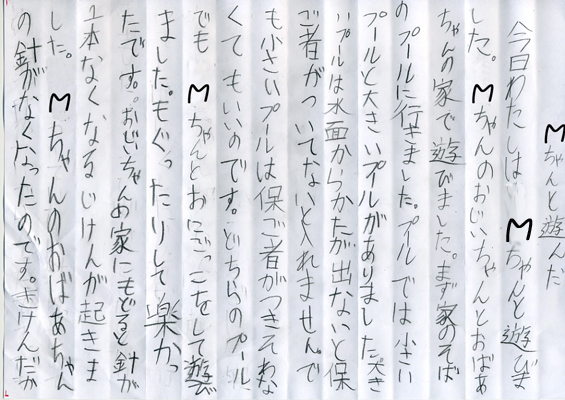 Mちゃんと遊んだ
今日わたしは Mちゃんと遊びま
した。Mちゃんのおじいちゃんとおばあ
ちゃんの家で遊びました。まず家のそば
のプールに行きました。プールでは小さい
プールと大きいプールがありました。大き
いプールは水面からかたが出ないと保
ご者がついてないと入れません。で
も小さいプールは保ご者がつきそわな
くてもいいのです。どちらのプール
でも Mちゃんとおにごっこをして遊び
ました。もぐったりして楽かっ
たです。おじいちゃんの家にもどると針が
1本なくなるじけんが起きま
した。Mちゃんのおばあちゃん
の針がなくなったのです。きけんだか